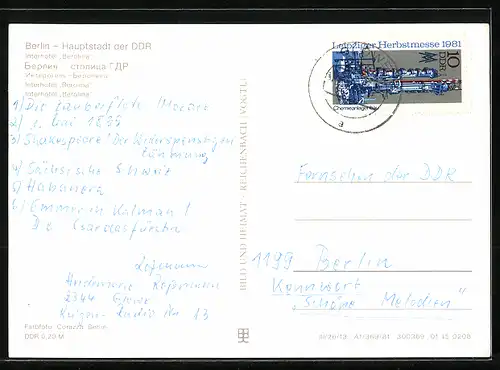 Berlin – Hauptstadt der DDR
Interhotel „Berolina"
Берлин – столица ГДР
Интеротель „Беролина"
Interhotel „Berolina"
Interhotel „Berolina"
1) Die Zauberflöte (Mozart
2) 1. Mai 18
3) Shakespeare "Der Widerspenstigen
Zähmung
4) Sächsische Schweiz
5) Habanera
6) Emmerich Kalman!
Die Csardasfürstin
Heidemarie
2344
13
Farbfoto Conazza, Berlin
DDR 0,20 M
BILD UND HEIMAT · REICHENBACH (VOGTL)
Leipziger Herbstmesse 1981
10
DDR
Chemieanlagen
a
Fernsehen der DDR
1199 Berlin
Kennwort
"Schöne Melodien"